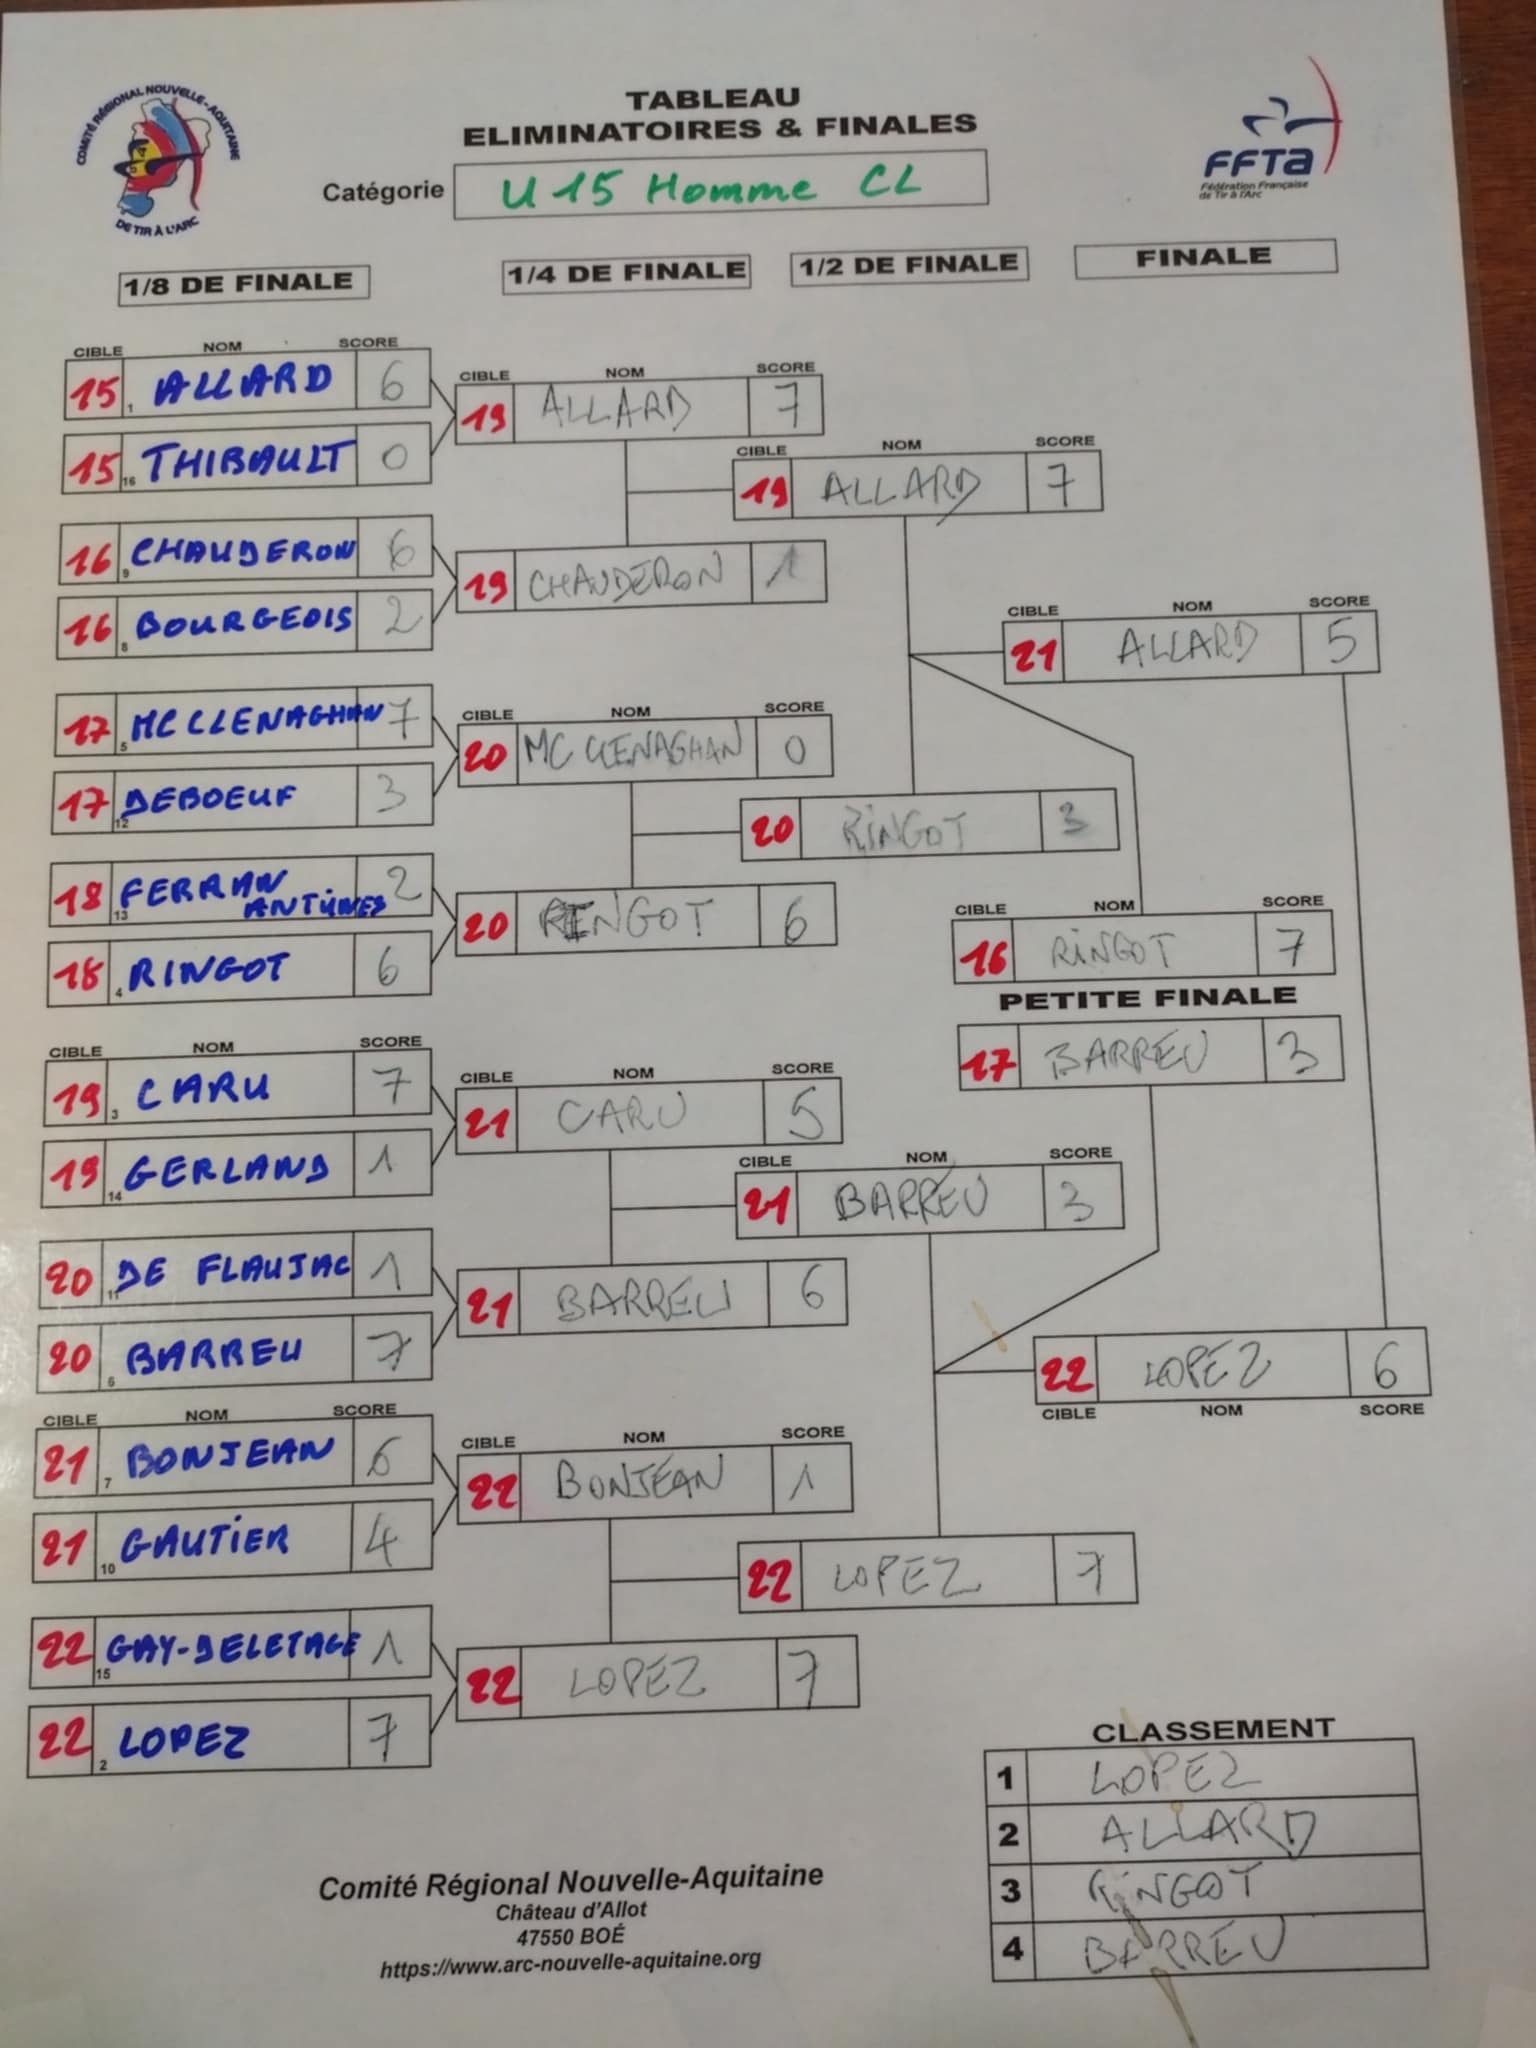 COMITÉ RÉGIONAL NOUVELLE-AQUITAINE
DE TIR À L'ARC
TABLEAU
ELIMINATOIRES & FINALES
Catégorie U15 Homme CL
FFTA
Fédération Française
de Tir à l'Arc
1/8 DE FINALE
1/4 DE FINALE
1/2 DE FINALE
FINALE
CIBLE NOM SCORE
15 1 ALLARD 6
15 16 THIBAULT 0
16 9 CHAUDERON 6
16 8 BOURGEOIS 2
17 5 MC CLENAGHAN 7
17 12 DEBOEUF 3
18 13 FERRAN ANTUNES 2
18 4 RINGOT 6
CIBLE NOM SCORE
19 3 CARU 7
19 14 GERLAND 1
20 11 DE FLAUJAC 1
20 6 BARREU 7
CIBLE NOM SCORE
21 7 BONJEAN 6
21 10 GAUTIER 4
22 15 GAY-DELETAGE 1
22 2 LOPEZ 7
CIBLE NOM SCORE
19 ALLARD 7
19 CHAUDERON 1
CIBLE NOM SCORE
20 MC CLENAGHAN 0
20 RINGOT 6
CIBLE NOM SCORE
21 CARU 5
21 BARREU 6
CIBLE NOM SCORE
22 BONJEAN 1
22 LOPEZ 7
CIBLE NOM SCORE
19 ALLARD 7
20 RINGOT 3
CIBLE NOM SCORE
21 BARREU 3
22 LOPEZ 7
CIBLE NOM SCORE
21 ALLARD 5
CIBLE NOM SCORE
16 RINGOT 7
PETITE FINALE
17 BARREU 3
22 LOPEZ 6
CIBLE NOM SCORE
CLASSEMENT
1 LOPEZ
2 ALLARD
3 RINGOT
4 BARREU
Comité Régional Nouvelle-Aquitaine
Château d'Allot
47550 BOÉ
https://www.arc-nouvelle-aquitaine.org